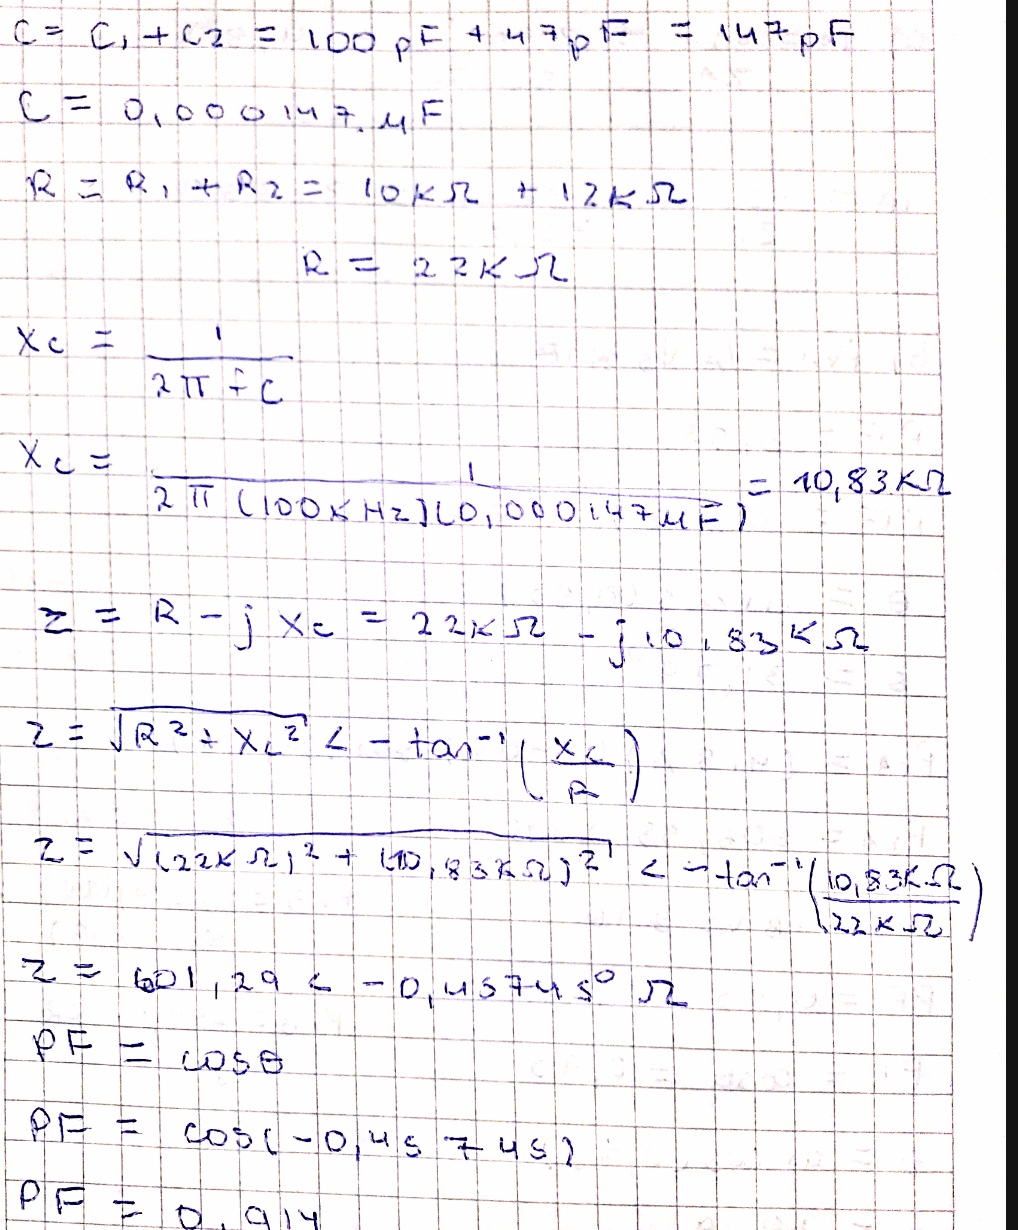 C = C1 + C2 = 100 pF + 47 pF = 147 pF
C = 0,000147. μF
R = R1 + R2 = 10KΩ + 12KΩ
R = 22KΩ
Xc = 1 / 2π f C
Xc = 1 / 2π (100KHz)(0,000147μF) = 10,83KΩ
Z = R - j Xc = 22KΩ - j 10,83KΩ
Z = √(R² + Xc²) < - tan⁻¹ (Xc / R)
Z = √((22KΩ)² + (10,83KΩ)²) < - tan⁻¹ (10,83KΩ / 22KΩ)
Z = 601,29 < - 0,45745° Ω
PF = cosθ
PF = cos(-0,45745)
PF = 0,914